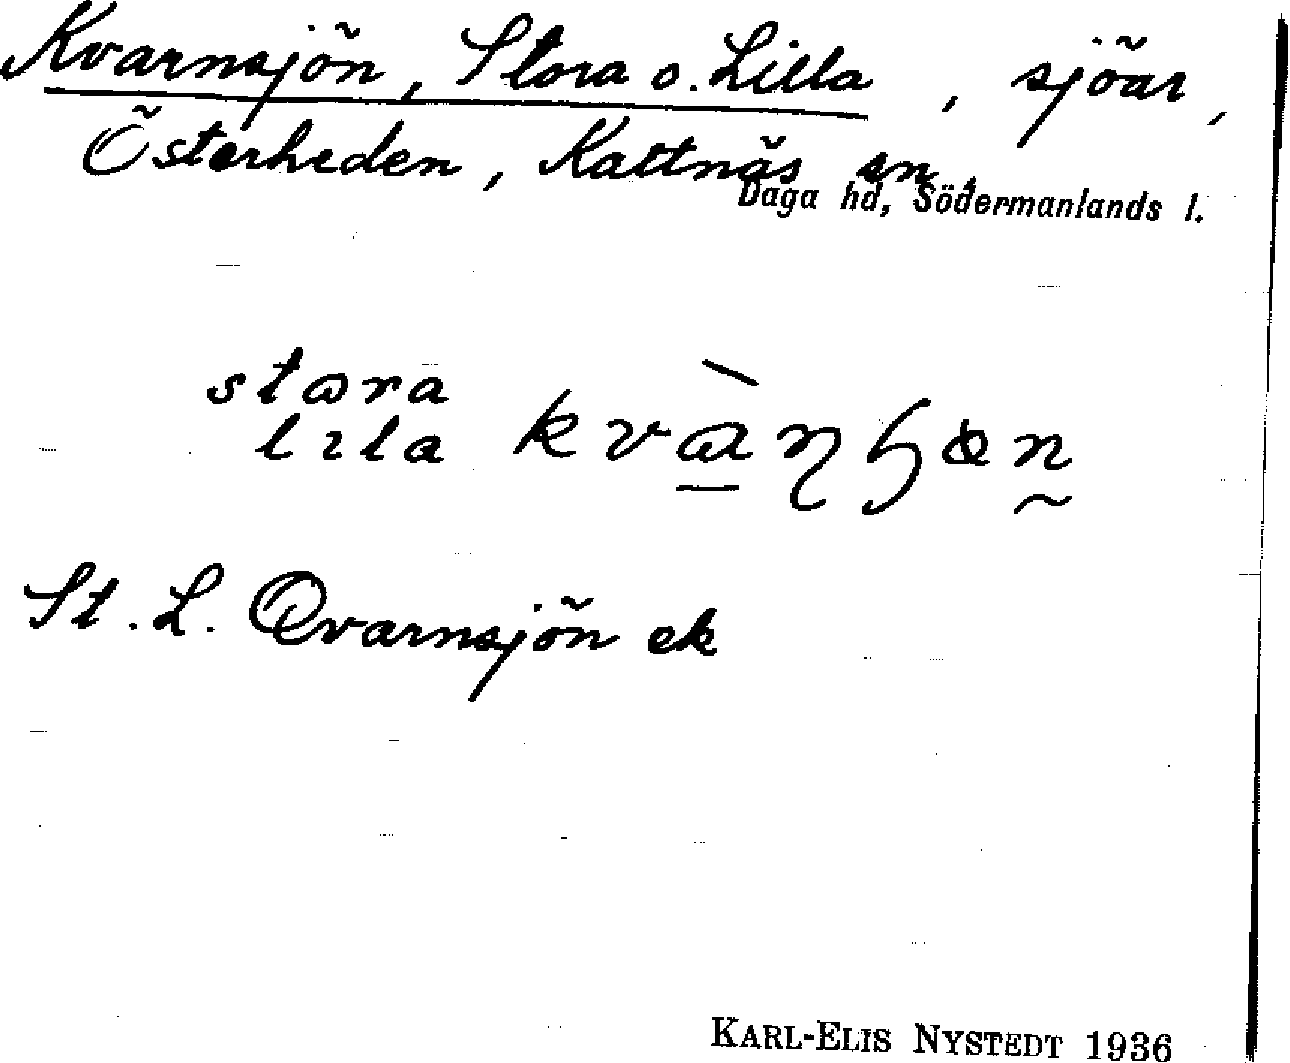 Kvarnsjön, Stora o. Lilla, sjöar,
Österheden, Kattnäs sn,
Daga hd, Södermanlands l.
stɷra
lıla kvàŋꞕɶn
St. L. Qvarnsjön ek
KARL-ELIS NYSTEDT 1936